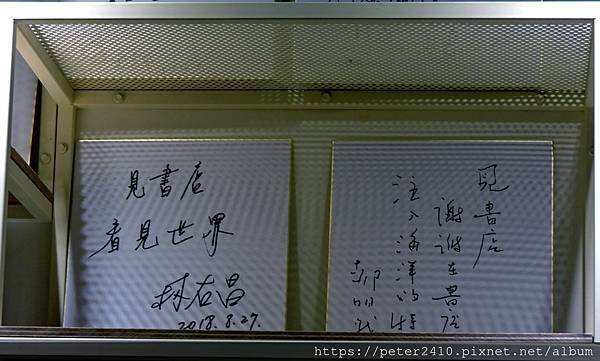 見書店
看見世界
林右昌
2018.8.27.
見書店
謝謝在書店
注入海洋的
https://peter2410.pixnet.net/album